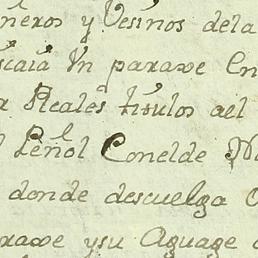 neros y Vesinos dela
scaia Vn paraxe En
Reales titulos ael
Peñol Conelde
donde descuelga
raxe ysu Aguage